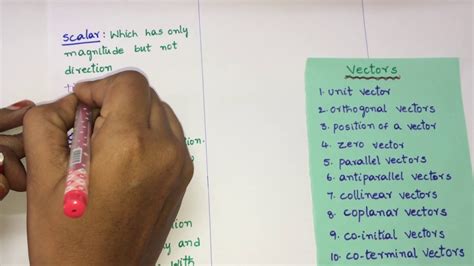 scalar: Which has only
magnitude but not
direction
Vectors
1. unit vector
2. orthogonal vectors
3. position of a vector
4. zero vector
5. parallel vectors
6. antiparallel vectors
7. collinear vectors
8. coplanar vectors
9. co-initial vectors
10. co-terminal vectors